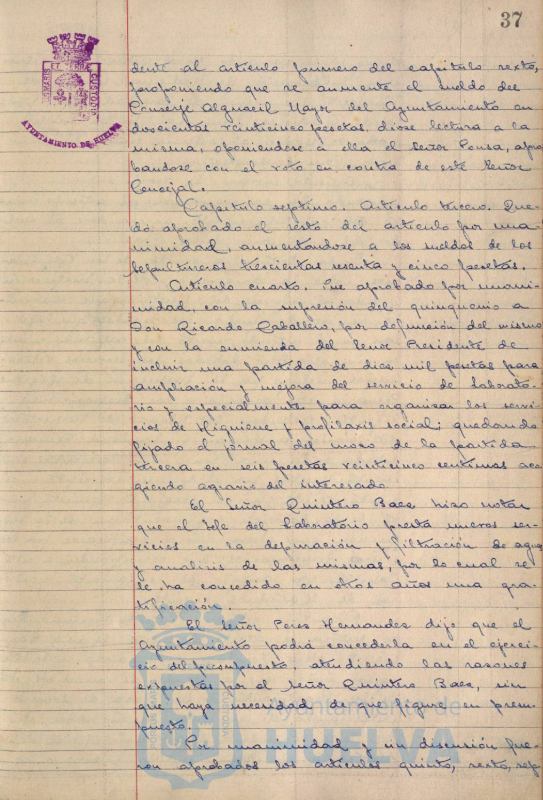 37
AYUNTAMIENTO DE HUELVA
dente al artículo primero del capítulo sexto,
proponiendo que se aumente el sueldo del
Conserje Alguacil Mayor del Ayuntamiento en
doscientas veinticinco pesetas, diose lectura a la
misma, oponiendose a ella el Señor Ponsa, apro
bandose con el voto en contra de este Señor
Concejal.
Capítulo septimo. Artículo tercero. Que-
dó aprobado el resto del artículo por una-
nimidad, aumentándose a los sueldos de los
sepultureros trescientas sesenta y cinco pesetas.
Artículo cuarto. Fue aprobado por unani-
midad, con la supresión del quinquenio a
Don Ricardo Caballero, por defunción del mismo
y con la enmienda del Señor Presidente de
incluir una partida de diez mil pesetas para
ampliación y mejora del servicio de Laborato-
rio y especialmente para organizar los servi-
cios de Higiene y profilaxis social; quedando
fijado el jornal del mozo de la partida
tercera en seis pesetas veinticinco centimos aco
giendo agravio del interesado.
El Señor Quintero Baez hizo notar
que el Jefe del Laboratorio presta nuevos ser-
vicios en la depuración y filtración de aguas
y análisis de las mismas, por lo cual se
le ha concedido en otros años una gra-
tificación.
El Señor Perez Hernandez dijo que el
Ayuntamiento podrá concederla en el ejerci-
cio del presupuesto, atendiendo las razones
expuestas por el Señor Quintero Baez, sin
que haya necesidad de que figure en presu-
puesto.
Por unanimidad y sin discusión fue-
ron aprobados los artículos quinto, sexto, sep
Ayuntamiento de
HUELVA